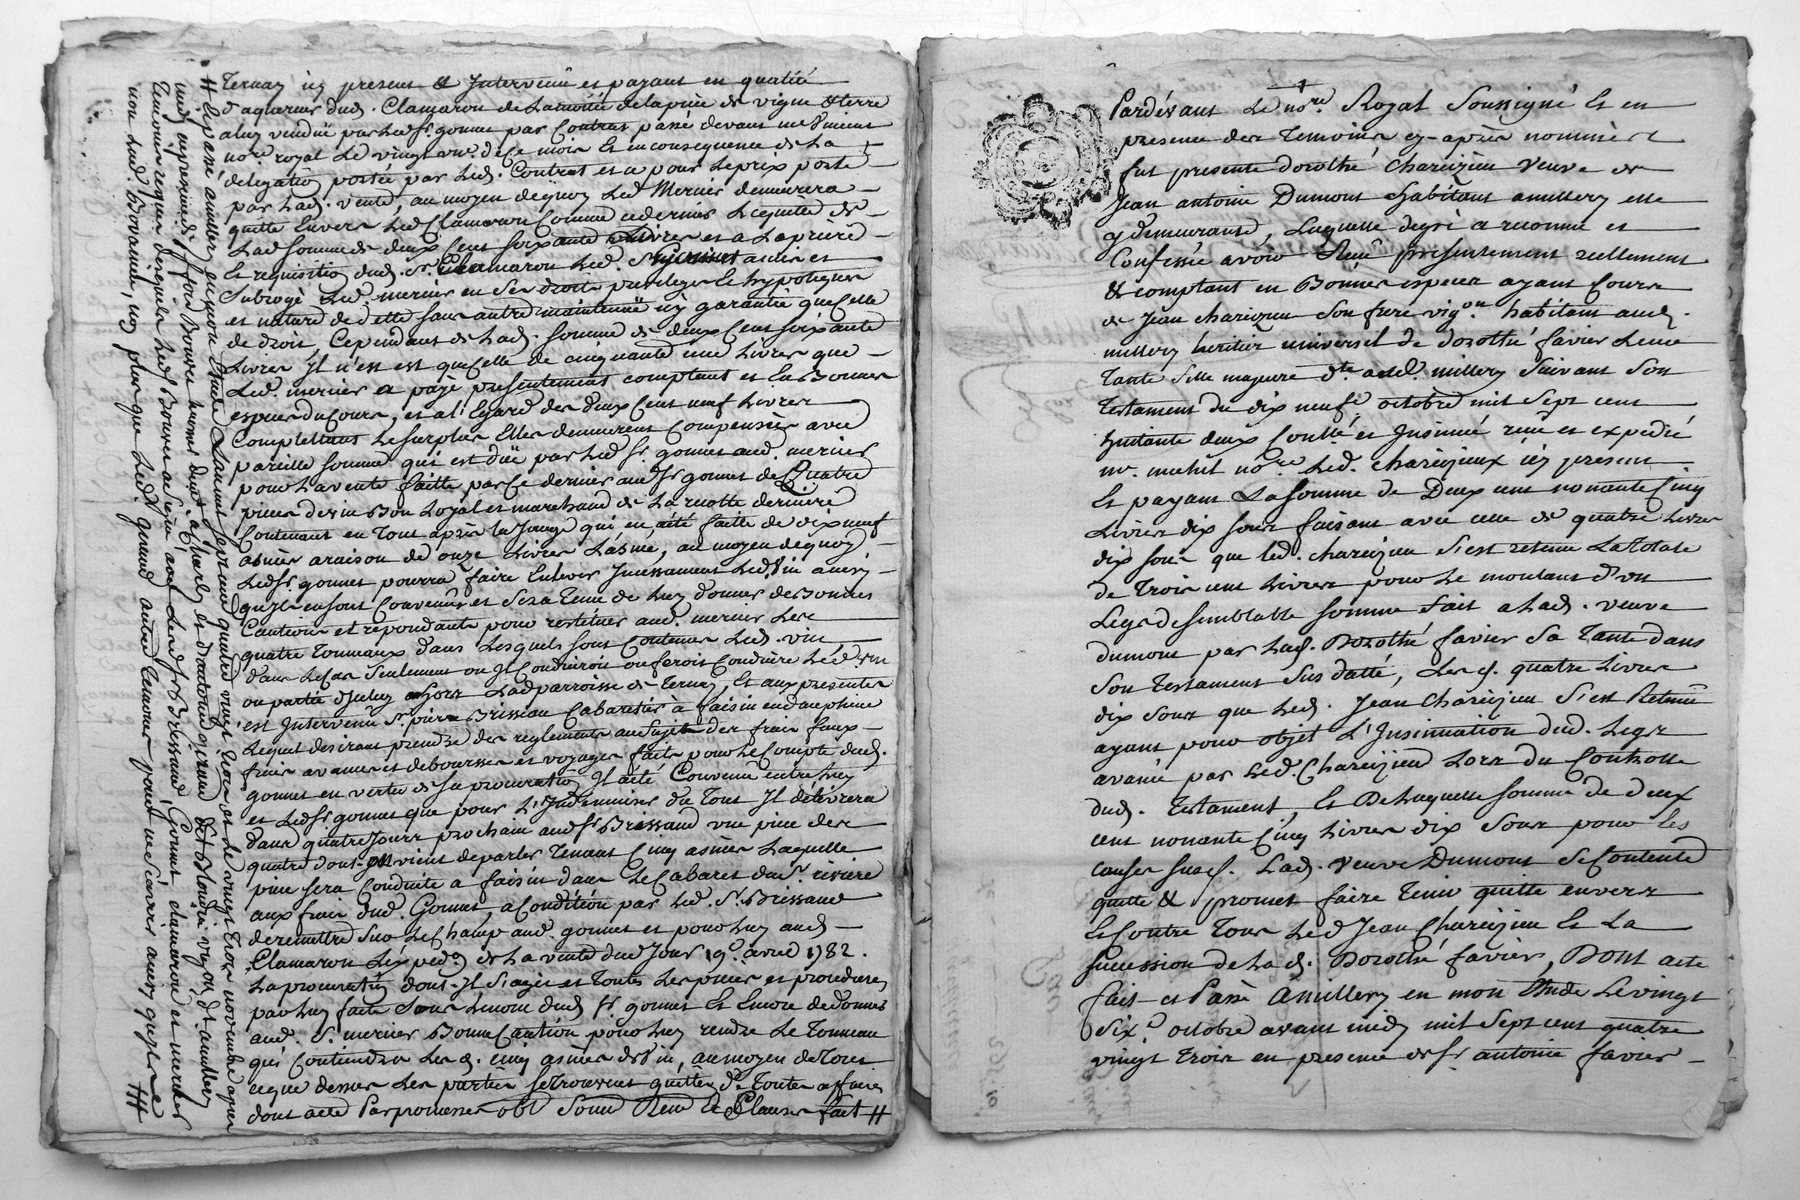 Ternay icy present & Intervenu et payant en qualité
d'aquereur dud. Clamaron de la moitié de la piece de vigne & terre
a luy vendüe par led. Sr. gonnet par Contrat passé devant me
nore royal Le vingt de Ce mois Et en consequence de La
delegation portée par led. Contrat et ce pour le prix porté
par lad. vente, au moyen dequoy Led Mercier demeurera
quitte Envers Led Clamaron Comme ce dernier L'equitte de
Lad somme de deux Cent soixante Livres et a La priere
Et requisition dud. Sr. Clamaron Led. Sr. gonnet a mis et
Subrogé Led. mercier en Ses droits privileges Et hypoteques
et nature de dette sans autre maintenue icy garantie que Celle
de droit, Cependant de Lad. Somme de deux Cent soixante
Livres Il n'en est que Celle de cinquante une Livres que
Led. mercier a payé presentement comptant et En Bonnes
especes du Cours, et a l'Egard des deux Cent neuf Livres
Complettant Le surplus Elles demeurent Compensées avec
pareille somme qui est düe par Led Sr. gonnet aud. mercier
pour La vente faitte par Ce dernier aud Sr gonnet de Quatre
pieces de vin Bon Loyal et marchand de La recolte derniere
Contenant en Tout après la Jauge qui en a été faitte de dix neuf
asnées a raison de onze Livres L'asnée, au moyen dequoy
Led Sr. gonnet pourra faire Enlever Incessament Led. Vin ainsy
qu'Ils en sont Convenus et Sera Tenu de Luy donner de Bonnes
Cautions et repondants pour restituer aud. mercier Les
quatre Tonneaux dans Lesquels sont Contenus Led. vin
dans Le Cas Seulement ou Il Conduiroit ou feroit Conduire Led. vin
ou partie d'Iceluy Hors Lad parroisse de Ternay, Et aux presentes
est Intervenu Sr. pierre Brissaud Cabaretier a faisin en dauphiné
Lequel desirant prendre des reglements au Sujet des frais faux
frais avances et debourses et voyages faits pour Le Compte dud.
gonnet en vertu de sa procuration Il a été Convenu entre luy
et Led Sr gonnet que pour L'Indemniser du Tout Il delivrera
dans quatre Jours prochain aud Sr Brissaud une piece des
quatre dont on vient de parler Tenant Cinq asnées Laquelle
piece sera Conduite a faisin dans Le Cabaret dud Sr. riviere
aux frais dud. Gonnet, a Condition par Led. Sr. Brissaud
de remettre Sur Le Champ aud. gonnet et pour Luy aud
Clamaron L'expedon. de La vente dud Jour 19e. avril 1782.
La procuration dont Il S'agit et Toutes Les pieces et procedures
par Luy faites Sous Le nom dud Sr. gonnet Et Encore de donner
aud. Sr. mercier Bonne Caution pour Luy rendre Le Tonneau
qui Contiendra Les d. cinq asnées de Vin, au moyen de Tout
ce que dessus Les parties se Trouvent quittes de Toutes affaires
dont acte Par promesses obl Soum Ren Et Clauses fait #
# Et passé a millery en mon Etude L'an mil sept cent quatre vingt Trois et Le vingt Trois novembre apres
midy en presence de Sr. Benoit dud. a Charly et d'antoine girard dit Blondin vig.on d.t a millery
Temoins requis desquels Led Bouvier a Signé avec Led. Sr. Brissaud, Gonnet, clamaron et mercier
non Led. Blondin, non plus que Led. girard autre Temoin pour ne Scavoir ainsy quil a #
Pardevant Le nore. Royal Soussigné Et en
presence des Temoins cy-après nommés
fut presente dorothé Chareizieu veuve de
Jean antoine Dumont habitant a millery elle
y demeurante, Laquelle degré a reconnu et
Confessé avoir Receu presentement reellement
& comptant en Bonnes especes ayant Cours
de Jean chareizieu son frere vig.on habitant aud.
millery heritier universel de dorothé favier Leur
Tante fille majeure dte. aud. millery suivant son
Testament du dix neuf octobre mil Sept cent
huitante deux Conllé et Insinué reçu et expedié
me. nore. Led. chareizieux icy present
Et payant La somme de Deux cent nonante Cinq
Livres dix sours faisant avec celle de quatre Livres
dix sous que led. chareizieu s'est retenu La totale
de Trois cent Livres pour Le montant d'un
Legs de semblable somme fait a Lad. veuve
dumont par Lad. Dorothé favier Sa Tante dans
Son Testament Sus datté, Les d. quatre Livres
dix Sours que Led. Jean Chareizieu s'est Retenu
ayant pour objet L'Insinuation dud. Legs
avancé par Led. Chareizieu Lors du Controlle
dud. Testament, Et De Laquelle Somme de deux
cent nonante Cinq Livres dix Sours pour les
causes susd. Lad. veuve Dumont Se Contente
quitte & promet faire Tenir quitte envers
Et Contre Tous Led Jean Chareizieu Et La
succession de La d. Dorothé favier, Dont acte
fait et Passé a millery en mon Etude Le vingt
Six.e octobre avant midy mil Sept cent quatre
vingt Trois en presence de Sr. antoine favier